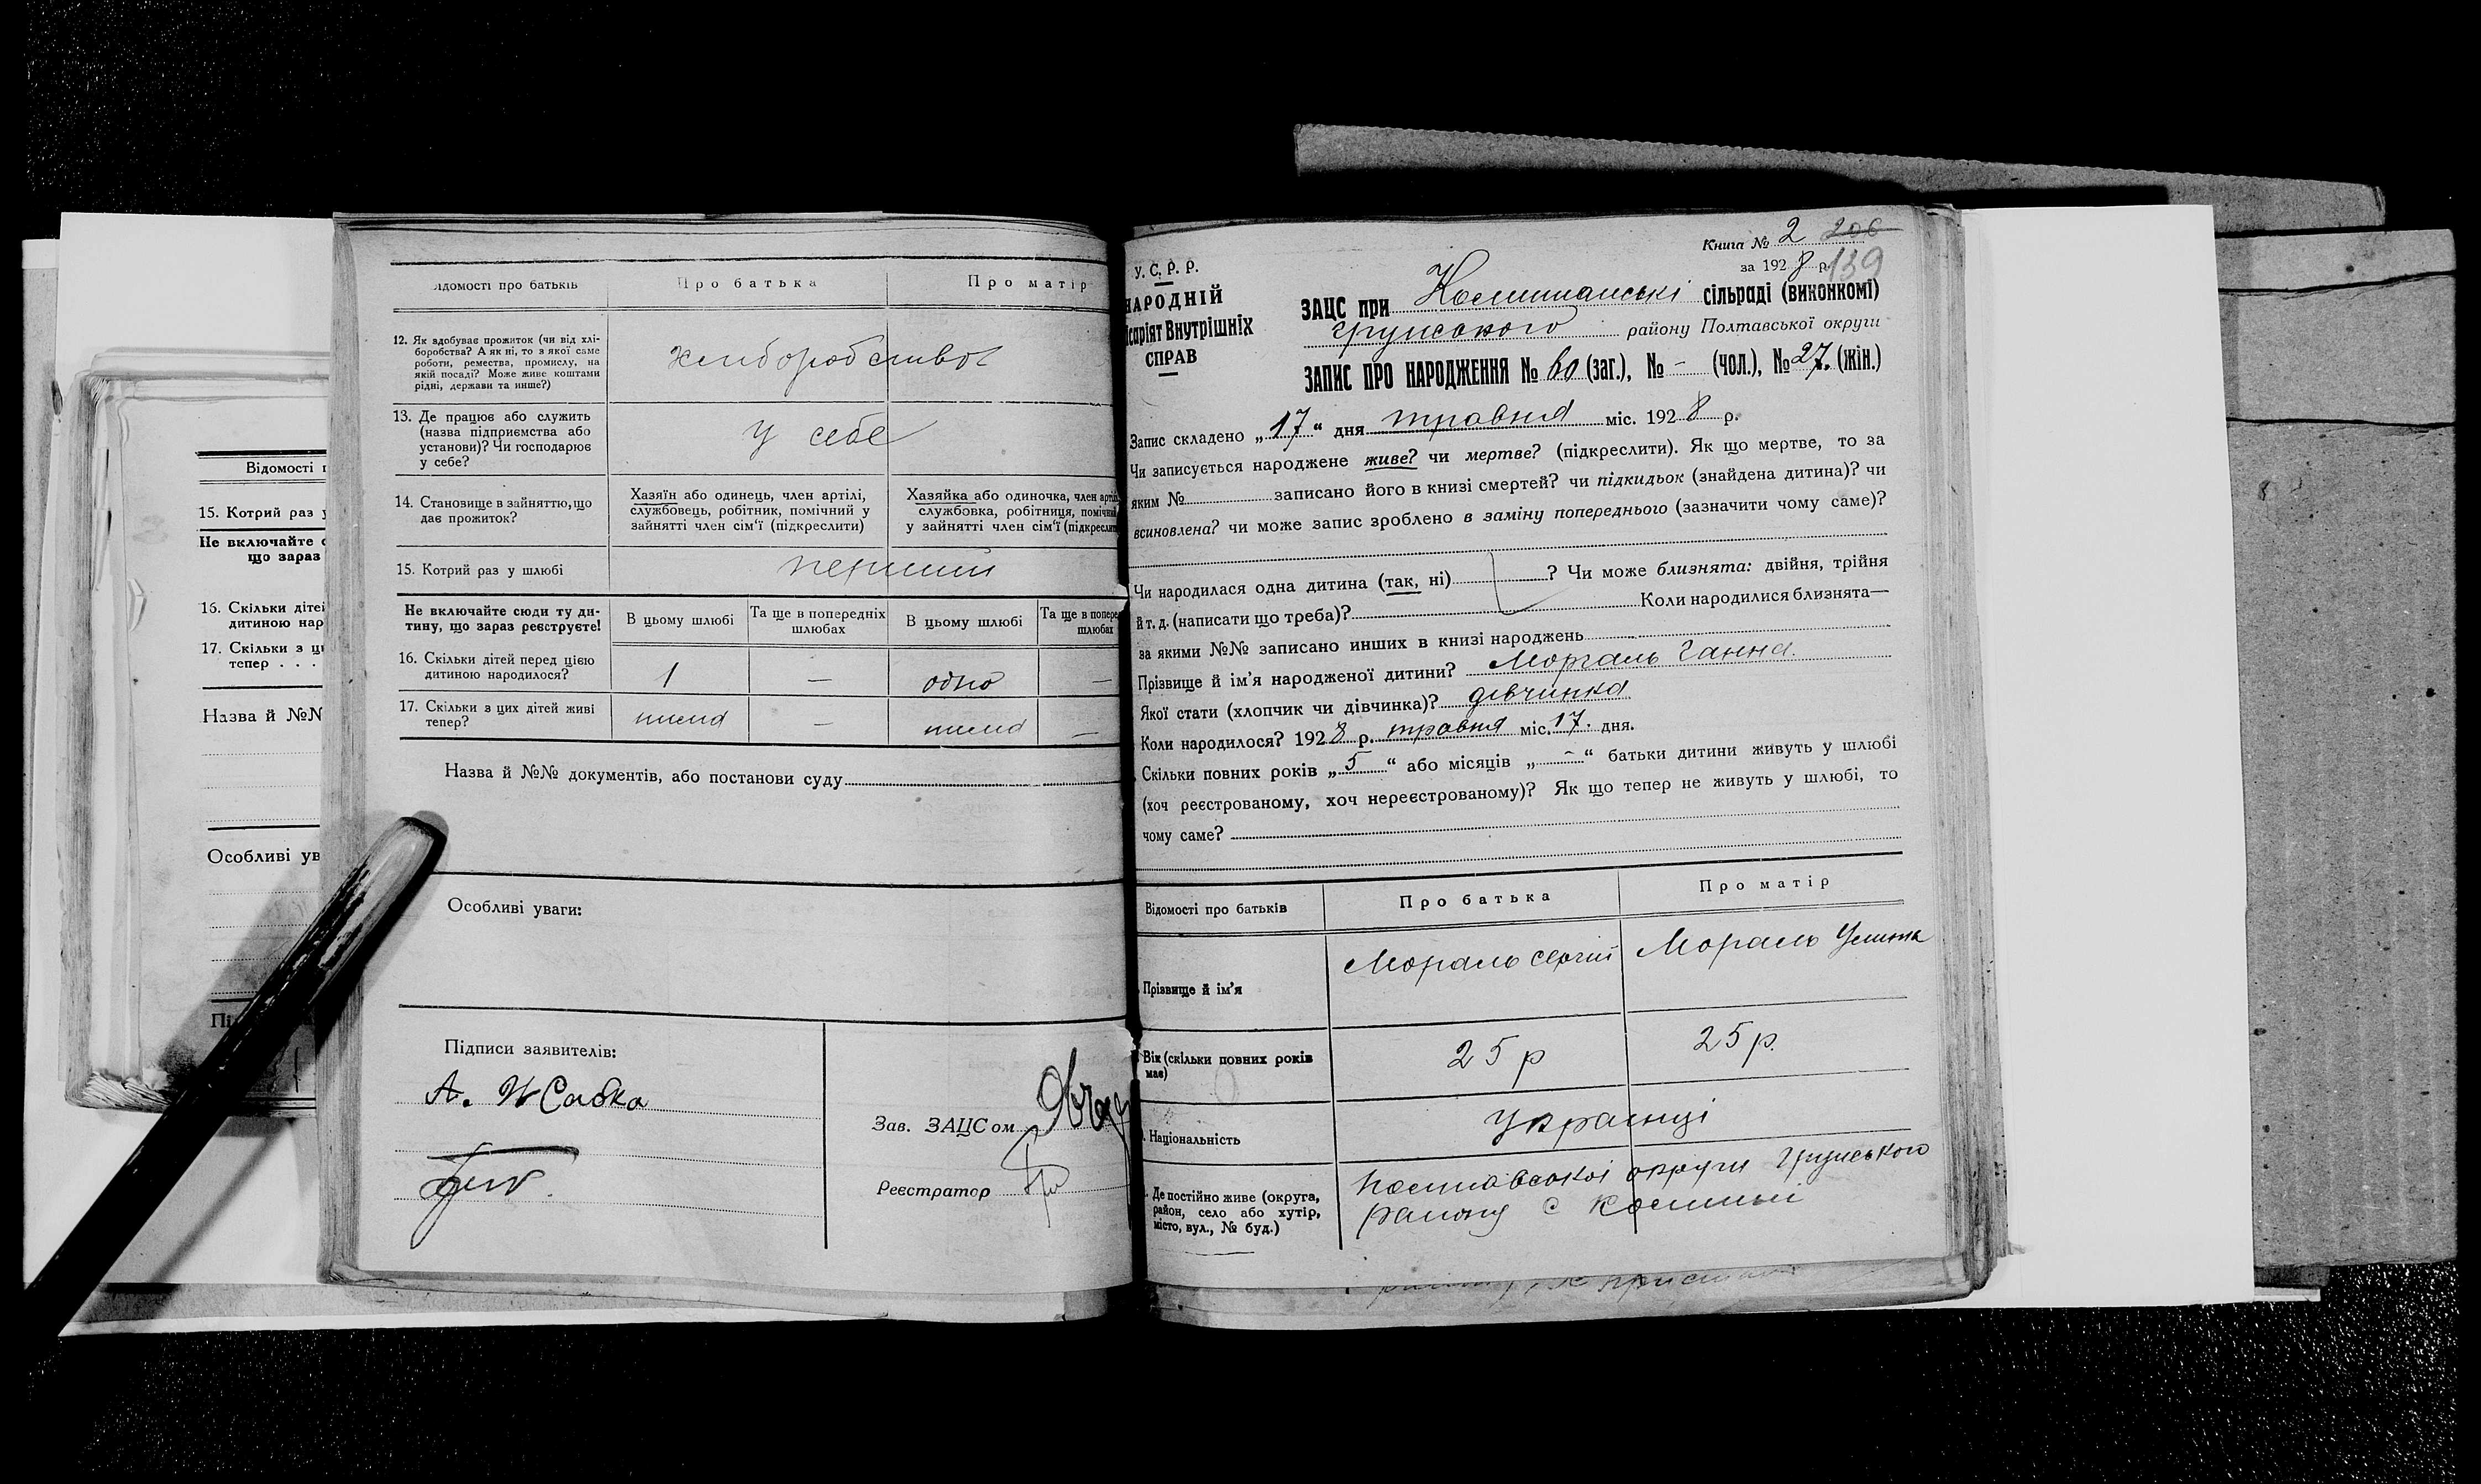 Відомості п
15. Котрий раз у
Не включайте с
що зараз
16. Скільки дітей
дитиною нар
17. Скільки з ци
тепер . . .
Назва й №№
Особливі ув
Пі
ідомості про батьків
Про батька
Про матір
12. Як здобуває прожиток (чи від хлі-
боробства? А як ні, то з якої саме
роботи, ремества, промислу, на
якій посаді? Може живе коштами
рідні, держави та инше?)
хліборобство
13. Де працює або служить
(назва підприємства або
установи)? Чи господарює
у себе?
у себе
14. Становище в зайняттю, що
дає прожиток?
Хазяїн або одинець, член артілі,
службовець, робітник, помічний у
зайнятті член сім'ї (підкреслити)
Хазяйка або одиночка, член артіл
службовка, робітниця, помічний
у зайнятті член сім'ї (підкреслити
15. Котрий раз у шлюбі
перший
Не включайте сюди ту ди-
тину, що зараз реєструєте!
В цьому шлюбі
Та ще в попередніх
шлюбах
В цьому шлюбі
Та ще в попере
шлюбах
16. Скільки дітей перед цією
дитиною народилося?
1 — одно —
17. Скільки з цих дітей живі
тепер?
нима — нима —
Назва й №№ документів, або постанови суду
Особливі уваги:
Підписи заявителів:
А.
Зав. ЗАЦСом
Реєстратор
Книга № 2 206
за 1928 р. 139
У. С. Р. Р.
НАРОДНІЙ
ісаріят Внутрішніх
СПРАВ
ЗАЦС при сільраді (виконкомі)
Грунського району Полтавської округи
ЗАПИС ПРО НАРОДЖЕННЯ № 60 (заг.), № – (чол.), № 27. (жін.)
Запис складено „17“ дня травня міс. 1928 р.
Чи записується народжене живе? чи мертве? (підкреслити). Як що мертве, то за
яким № записано його в книзі смертей? чи підкидьок (знайдена дитина)? чи
всиновлена? чи може запис зроблено в заміну попереднього (зазначити чому саме)?
Чи народилася одна дитина (так, ні) ? Чи може близнята: двійня, трійня
й т. д. (написати що треба)? Коли народилися близнята—
за якими №№ записано инших в книзі народжень
Прізвище й ім'я народженої дитини? Моргаль Ганна.
Якої стати (хлопчик чи дівчинка)? дівчинка
Коли народилося? 1928 р. травня міс. 17. дня.
Скільки повних років „5“ або місяців „–“ батьки дитини живуть у шлюбі
(хоч реєстрованому, хоч нереєстрованому)? Як що тепер не живуть у шлюбі, то
чому саме?
Відомості про батьків
Про батька
Про матір
Прізвище й ім'я
Моргаль Сергій
Моргаль Улита
Вік (скільки повних років
має)
25 р
25 р.
. Національність
Українці
. Де постійно живе (округа,
район, село або хутір,
місто, вул., № буд.)
Полтавської округи Грунського
району с